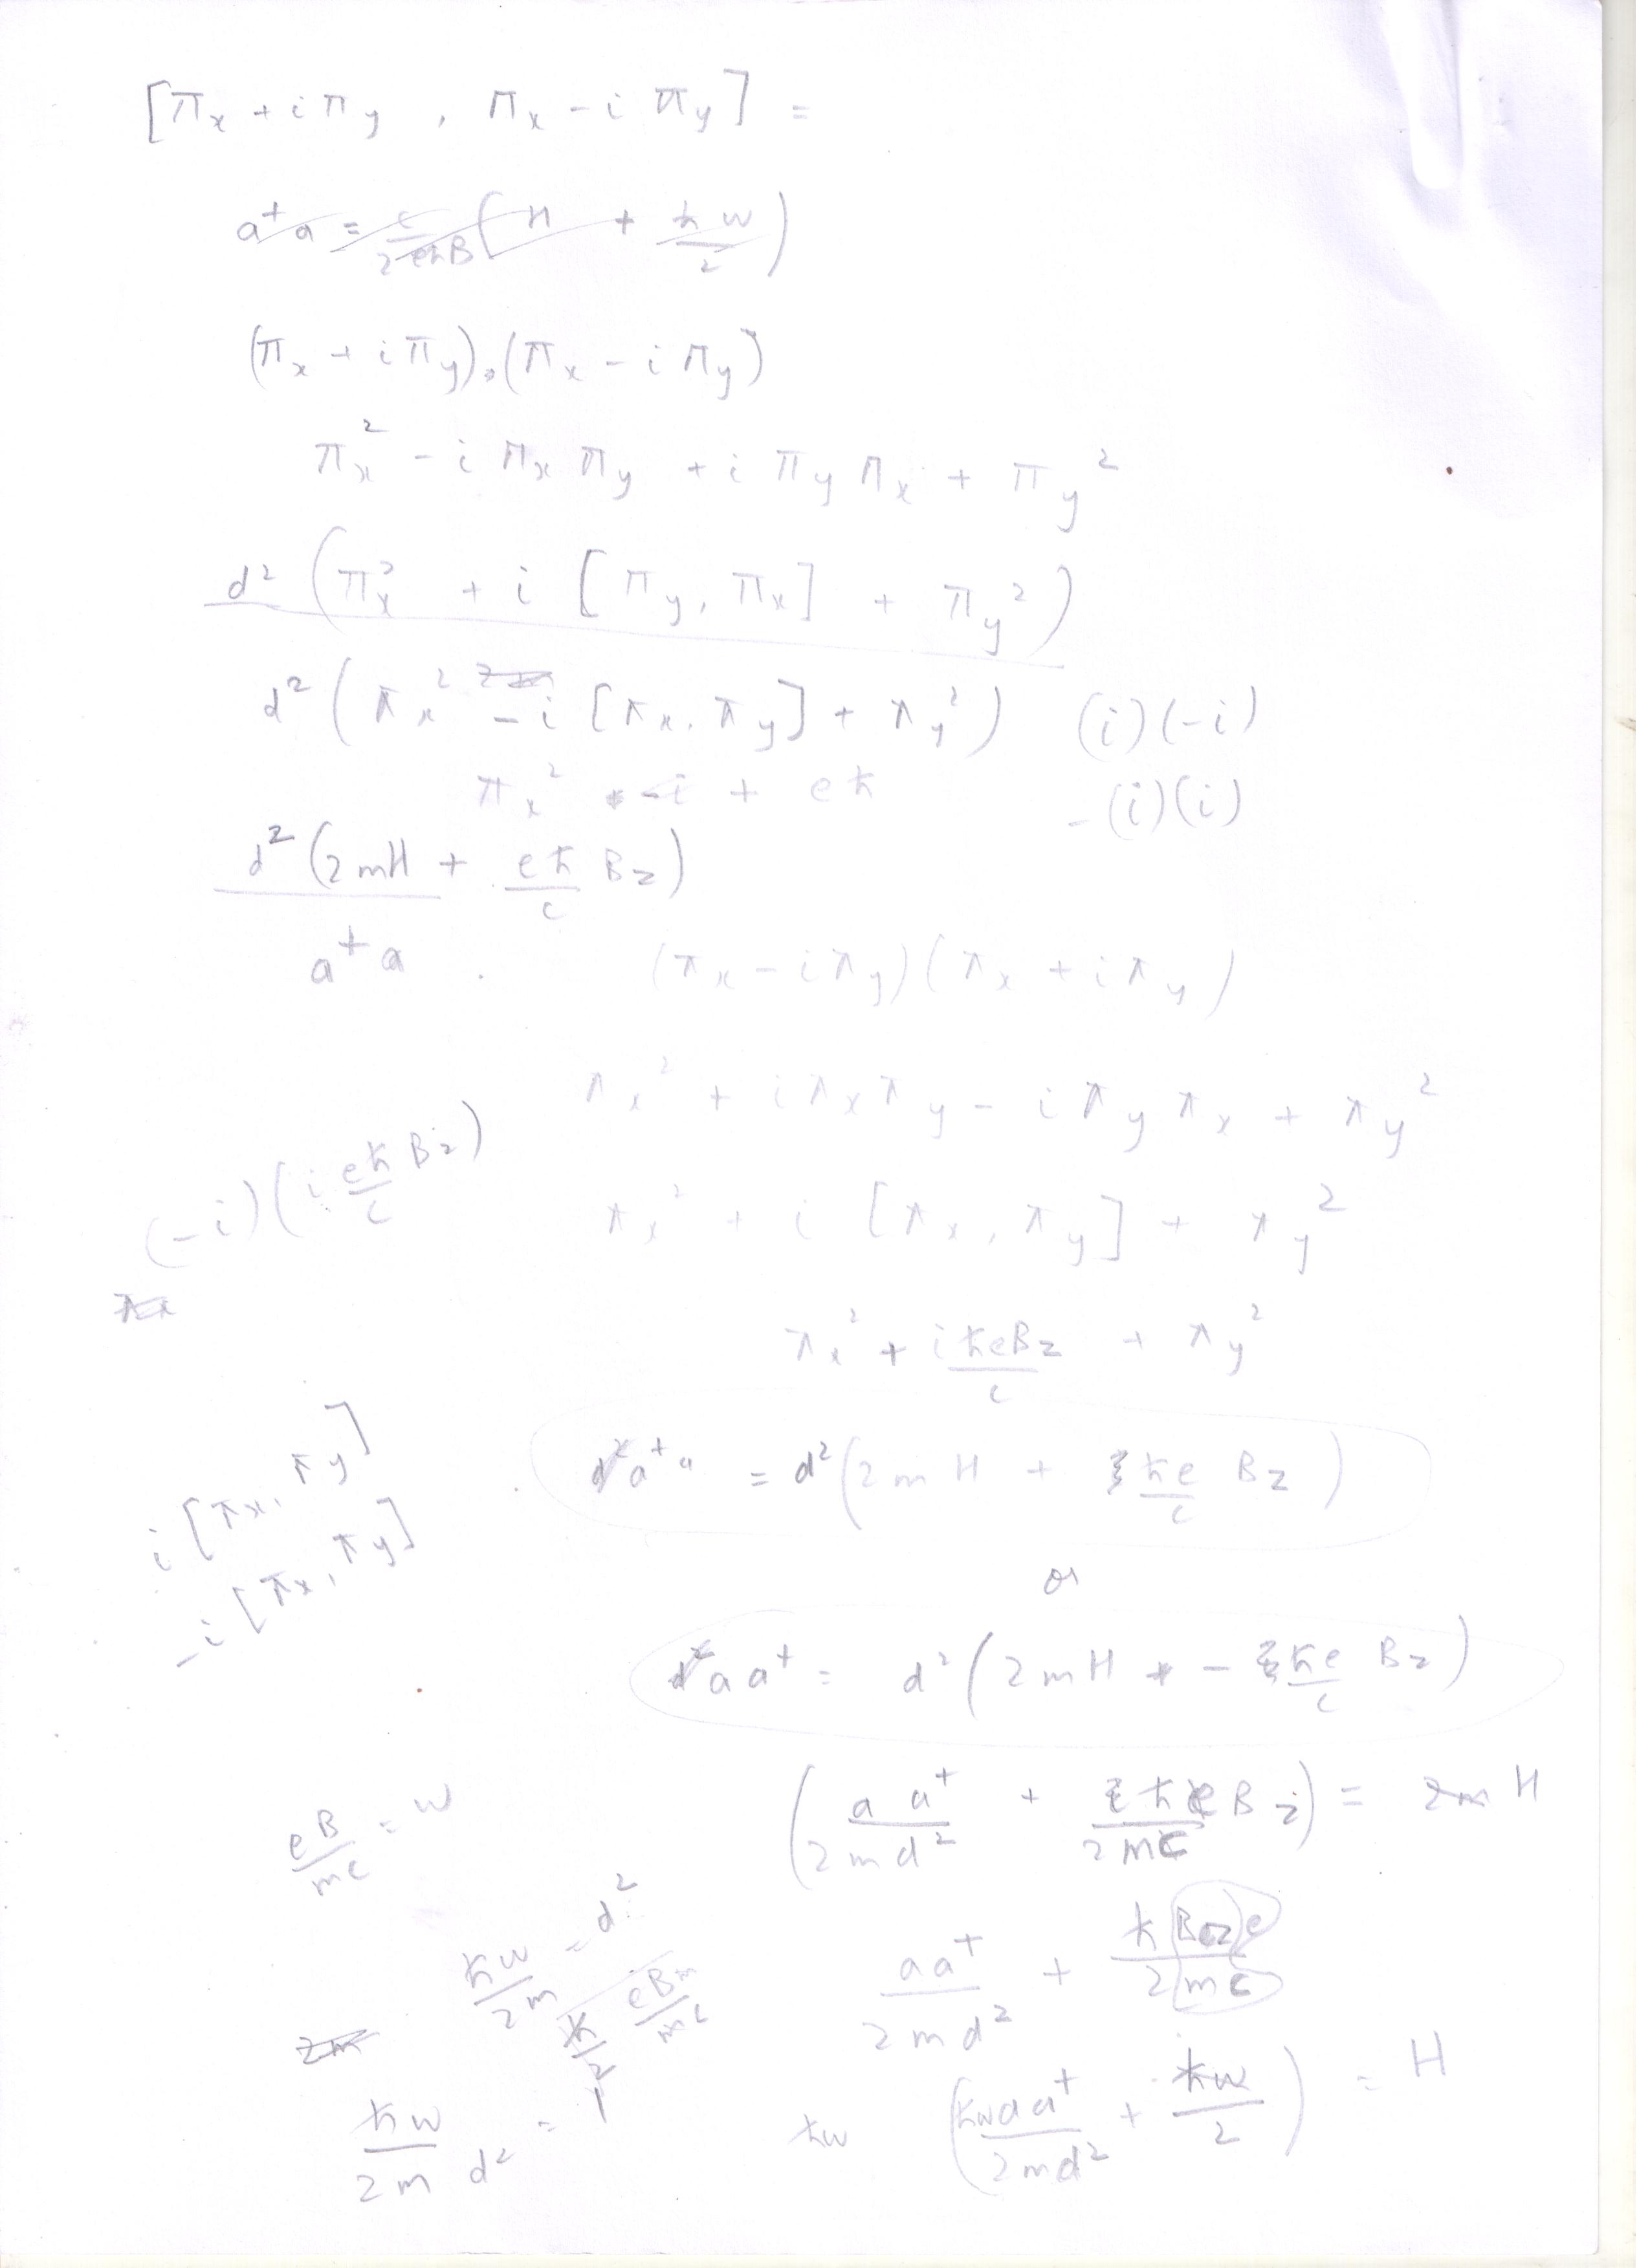 [πx + iπy , πx - iπy] =
a†a = c/2eħB (H + ħw/2)
(πx + iπy).(πx - iπy)
πx² - iπxπy + iπyπx + πy²
d² (πx² + i [πy, πx] + πy²)
d² (πx² - i [πx, πy] + πy²) (i)(-i)
πx² - i + eħ -(i)(i)
d² (2mH + eħ/c Bz)
a†a . (πx - iπy)(πx + iπy)
πx² + iπxπy - iπyπx + πy²
(-i)(i eħ/c Bz)
πx² + i [πx, πy] + πy²
πx
πx² + iħeBz/c + πy²
i [πx, πy]
a†a = d² (2mH + ħe/c Bz)
-i [πx, πy]
or
aa† = d² (2mH - ħe/c Bz)
eB/mc = w
(aa†/2md² + ħeBz/2mc) = 2mH
ħw/2m = d²
ħ/2 eBm/mc
aa†/2md² + ħBze/2mc
2m
ħw/2m d² = 1
ħw (ħwaa†/2md² + ħw/2) = H